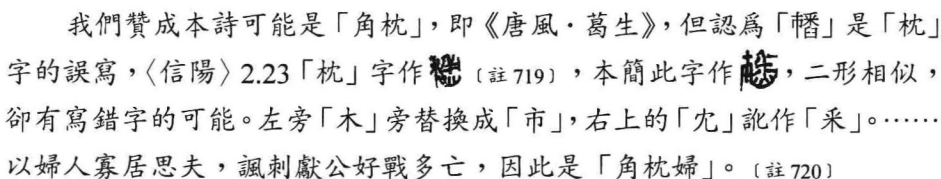 我們贊成本詩可能是「角枕」，即《唐風．葛生》，但認爲「𢅥」是「枕」
字的誤寫，〈信陽〉2.23「枕」字作〔註719〕，本簡此字作，二形相似，
卻有寫錯字的可能。左旁「木」旁替換成「巿」，右上的「冘」訛作「釆」。……
以婦人寡居思夫，諷刺獻公好戰多亡，因此是「角枕婦」。〔註720〕